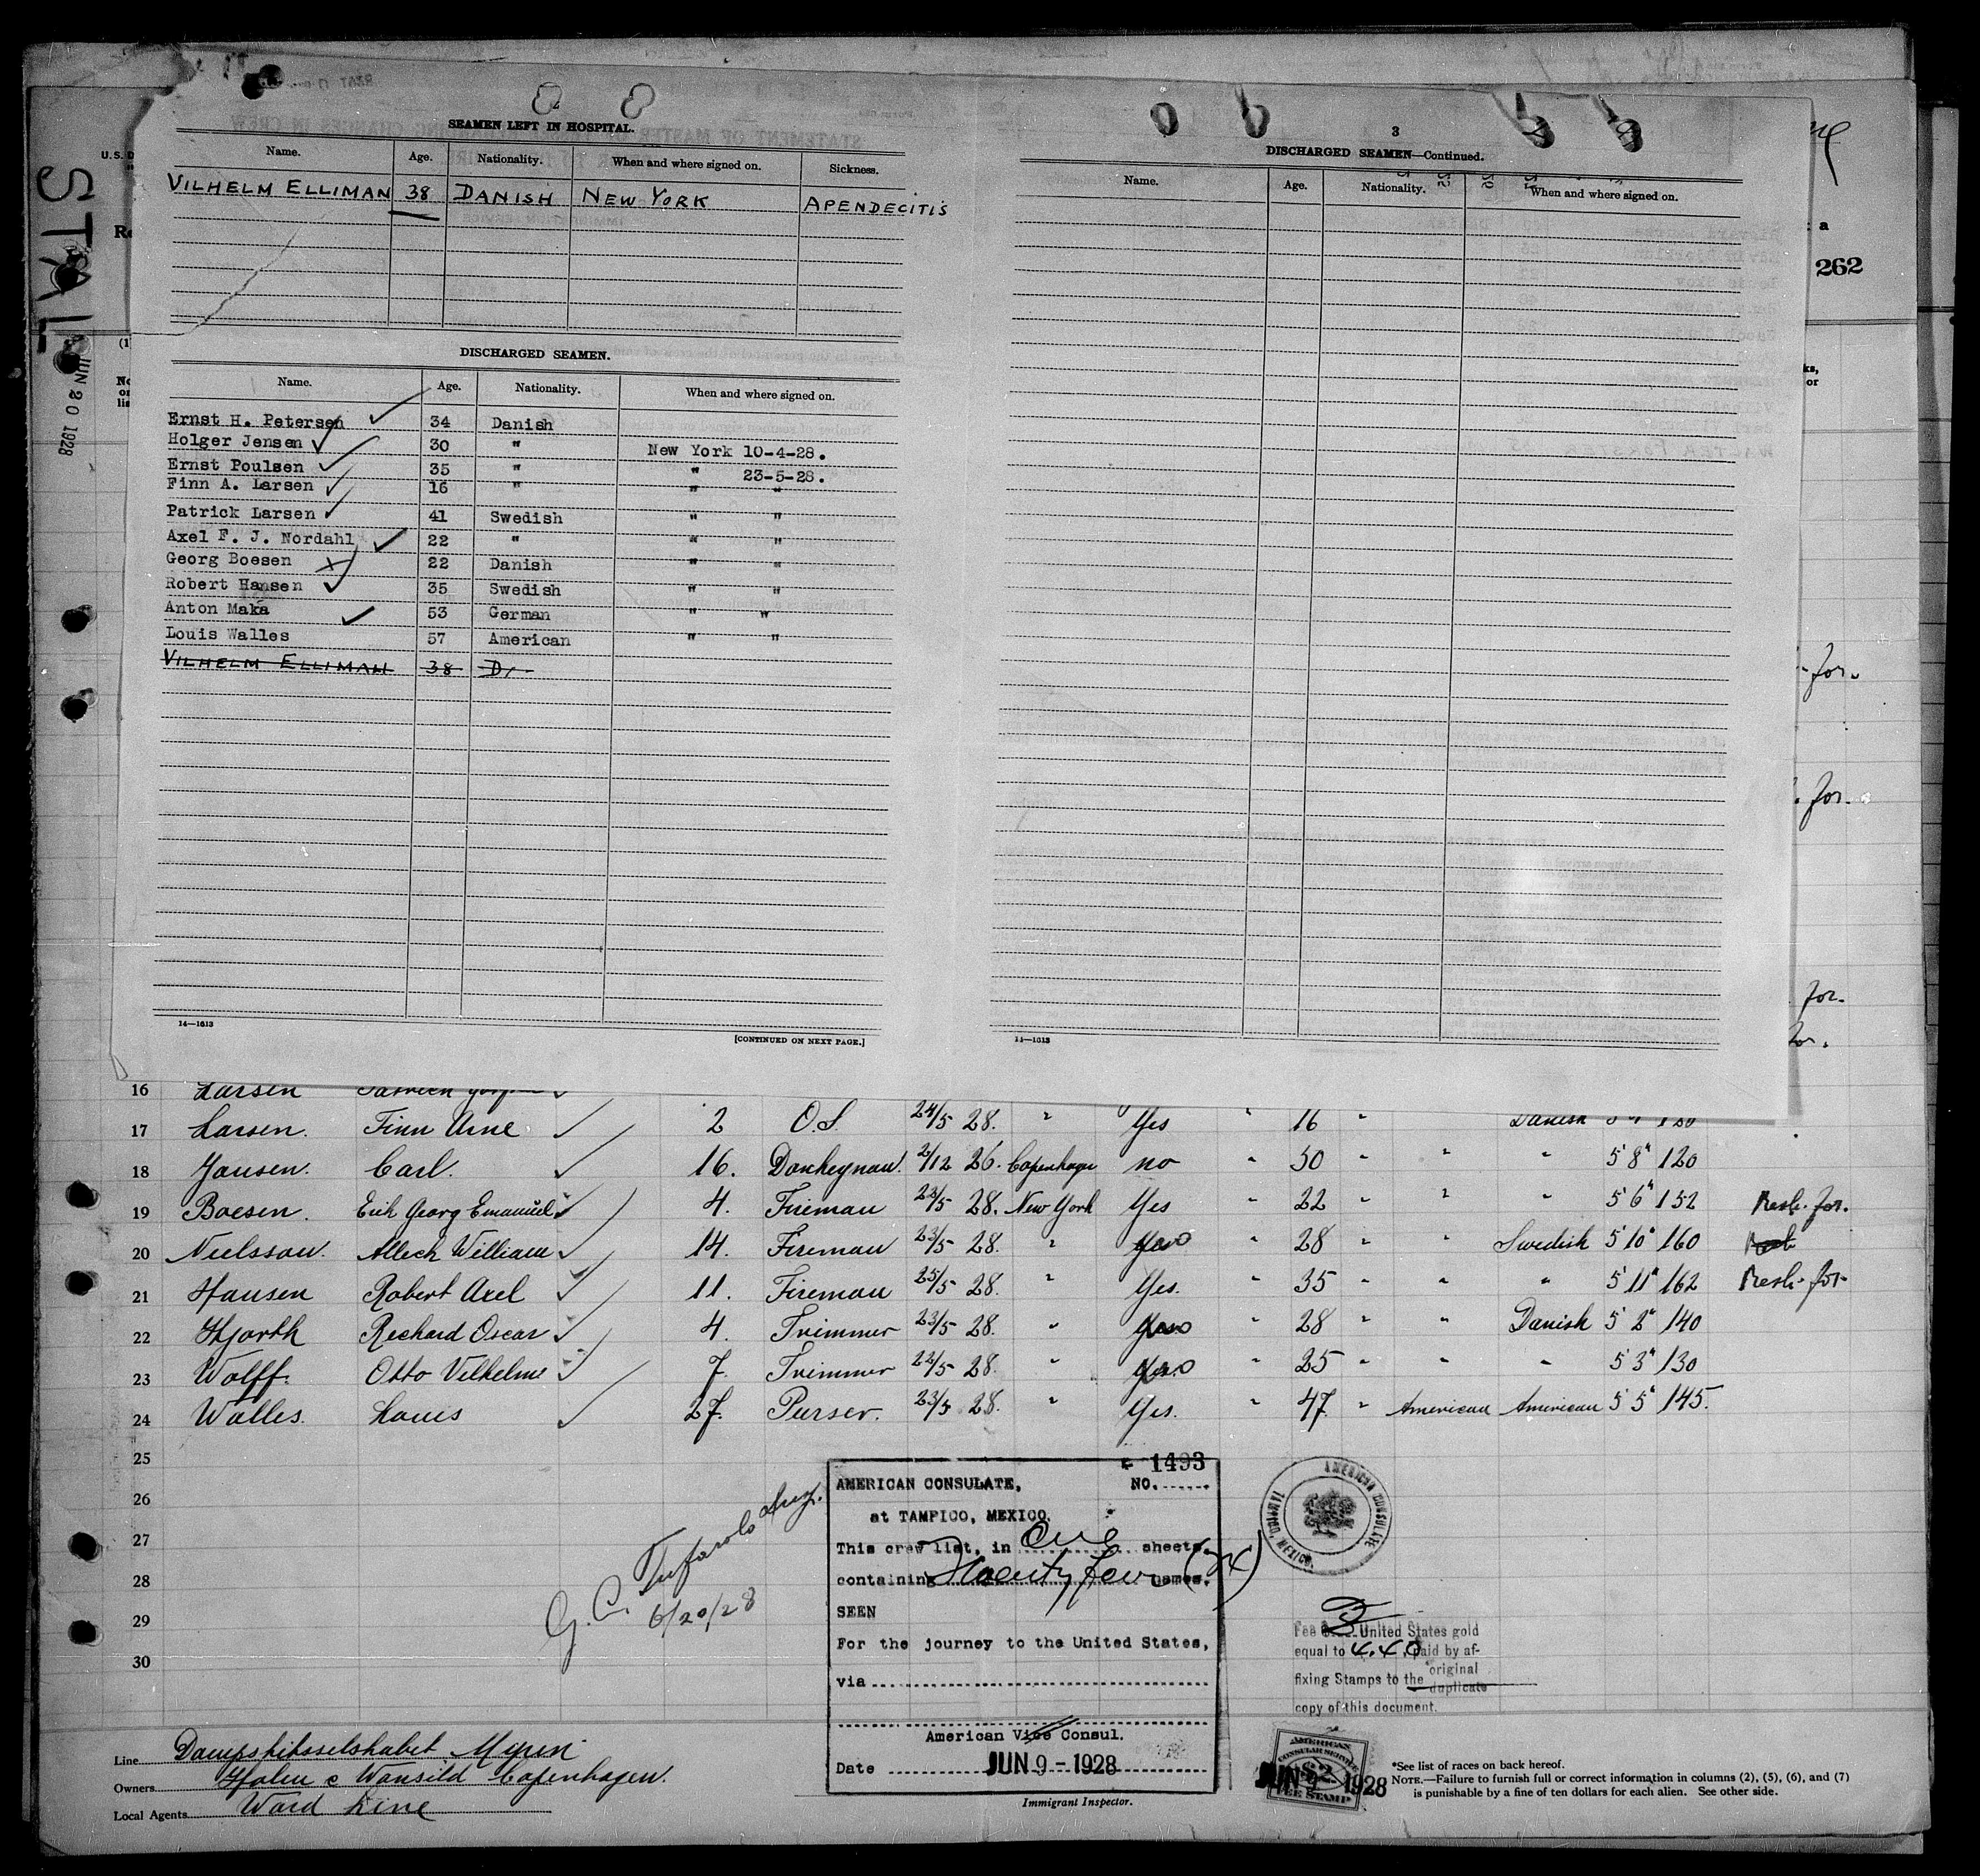 SEAMEN LEFT IN HOSPITAL.
Name. Age. Nationality. When and where signed on. Sickness.
VILHELM ELLIMAN 38 DANISH NEW YORK APENDECITIS
DISCHARGED SEAMEN.
Name. Age. Nationality. When and where signed on.
Ernst H. Petersen 34 Danish
Holger Jensen 30 " New York 10-4-28.
Ernst Poulsen 35 " " 23-5-28.
Finn A. Larsen 16 " " "
Patrick Larsen 41 Swedish " "
Axel F. J. Nordahl 22 " " "
Georg Boesen 22 Danish " "
Robert Hansen 35 Swedish " "
Anton Maka 53 German " "
Louis Walles 57 American " "
VILHELM ELLIMAN 38 D.
14—1613
[CONTINUED ON NEXT PAGE.]
3
DISCHARGED SEAMEN—Continued.
Name. Age. Nationality. When and where signed on.
14—1613
STAL
JUN 20 1928
U.S. D
(1)
a
262
ks,
or
for.
for.
for.
for.
16 Larsen
17 Larsen. Finn Arne 2 O.S. 24/5 28. " Yes " 16 " Danish
18 Jansen. Carl. 16. Donkeyman. 2/12 26. Copenhagen no " 50 " " " 5'8" 120
19 Boesen. Erik Georg Emanuel 4. Fireman 23/5 28. New York Yes 22 " " 5'6" 152 Resh. for.
20 Nielsson. Alleck William 14. Fireman 23/5 28. " no " 28 " " Swedish 5'10" 160
21 Hansen Robert Axel 11. Fireman 25/5 28. " Yes. " 35 " " " 5'11" 162 Resh. for.
22 Hjorth Rechard Oscar 4. Trimmer 23/5 28. " no " 28 " " Danish 5'2" 140
23 Wolff. Otto Vilhelm 7. Trimmer 22/5 28. " no " 25 " " " 5'3" 130
24 Walles. Louis 27. Purser. 23/5 28. " Yes. " 47 " American American 5'5" 145.
25
26
27
28
29
30
6/20/28
1493
AMERICAN CONSULATE, NO.
at TAMPICO, MEXICO.
This crew list, in One sheets,
containing Twenty four names, (24)
SEEN
For the journey to the United States,
via
American Vice Consul.
Date JUN 9 - 1928
Immigrant Inspector.
AMERICAN CONSULATE
TAMPICO, MEXICO.
Fee United States gold
equal to 4.40, paid by af-
fixing Stamps to the original
duplicate
copy of this document.
AMERICAN
CONSULAR SERVICE
$2
FEE STAMP
JUN 9 - 1928
Line Dampskibsselskabet Myren
Owners Holm & Wonsild Copenhagen.
Local Agents Ward Line
*See list of races on back hereof.
NOTE.—Failure to furnish full or correct information in columns (2), (5), (6), and (7)
is punishable by a fine of ten dollars for each alien. See other side.